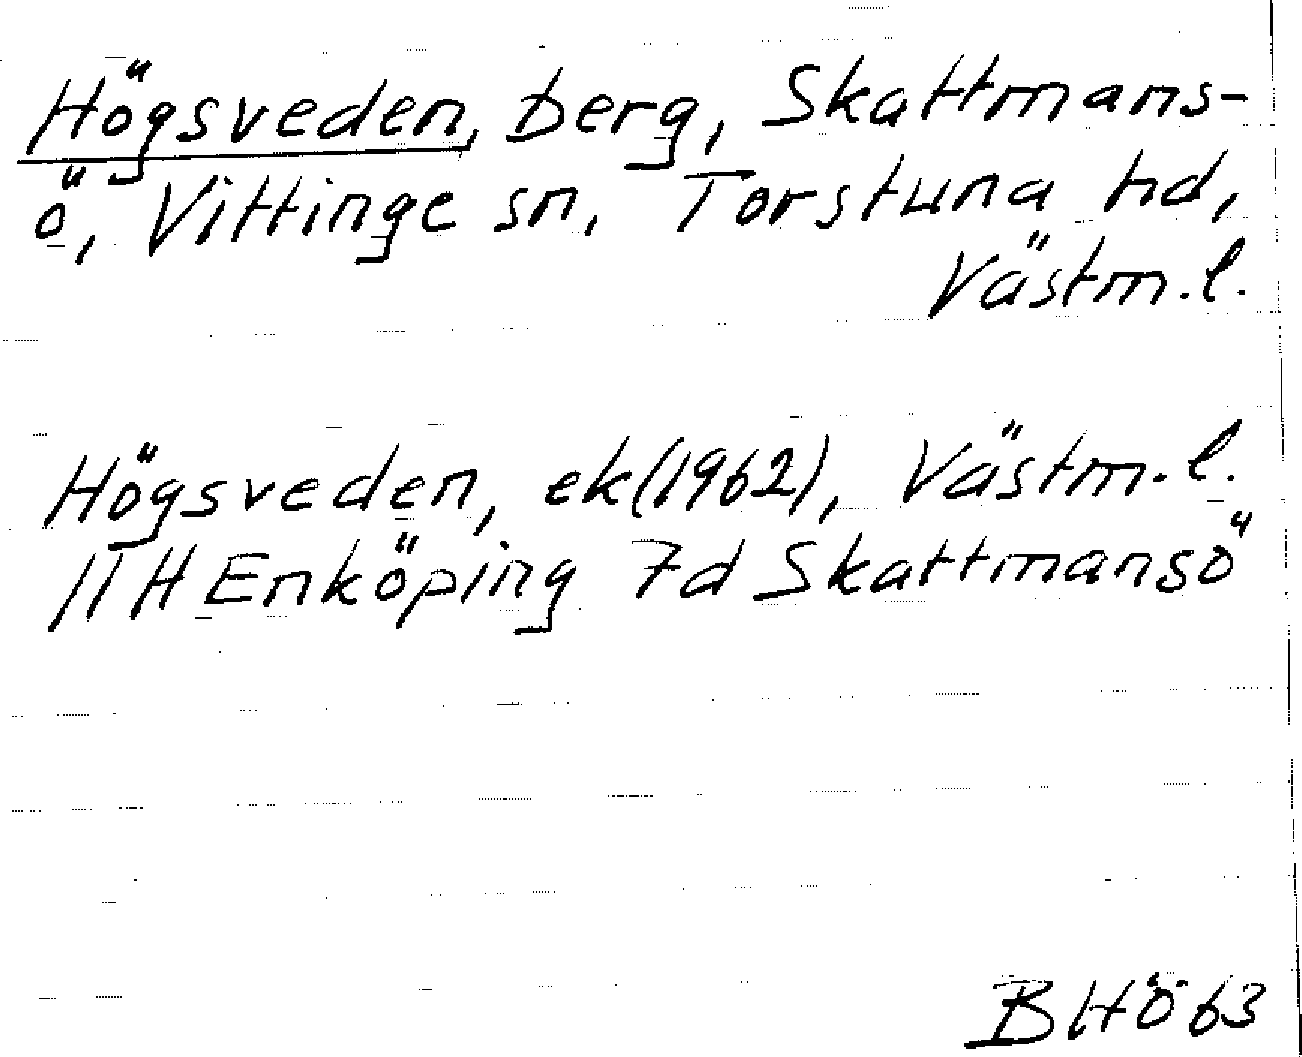 Högsveden, berg, Skattmans-
ö, Vittinge sn, Torstuna hd,
Västm.l.
Högsveden, ek(1962), Västm.l.
11H Enköping 7d Skattmansö
BHö 63